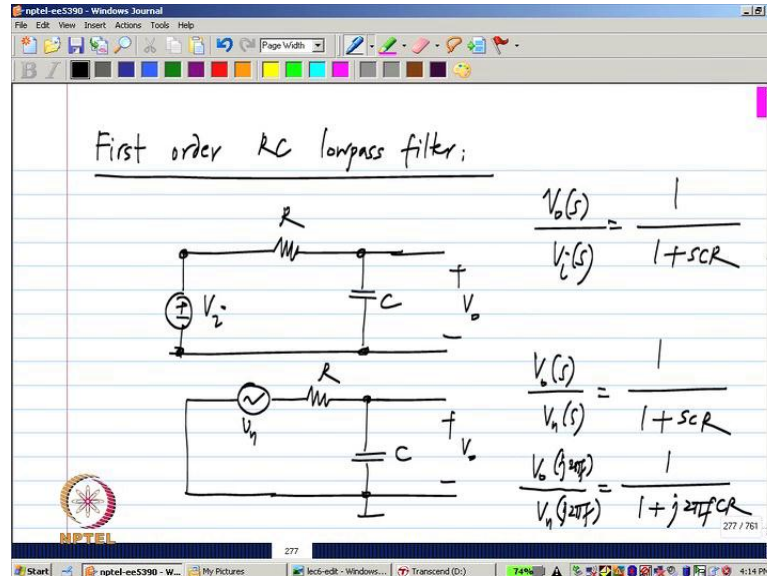 nptel-ee5390 - Windows Journal
File Edit View Insert Actions Tools Help
Page Width
B I
First order RC lowpass filter:
R
Vi
C
+
Vo
−
Vo(s) / Vi(s) = 1 / 1 + sCR
R
Vn
C
+
Vo
−
Vo(s) / Vn(s) = 1 / 1 + sCR
Vo(j2πf) / Vn(j2πf) = 1 / 1 + j2πfCR
NPTEL
277 / 761
277
Start
nptel-ee5390 - W...
My Pictures
lec6-edit - Windows...
Transcend (D:)
74%
4:14 PM